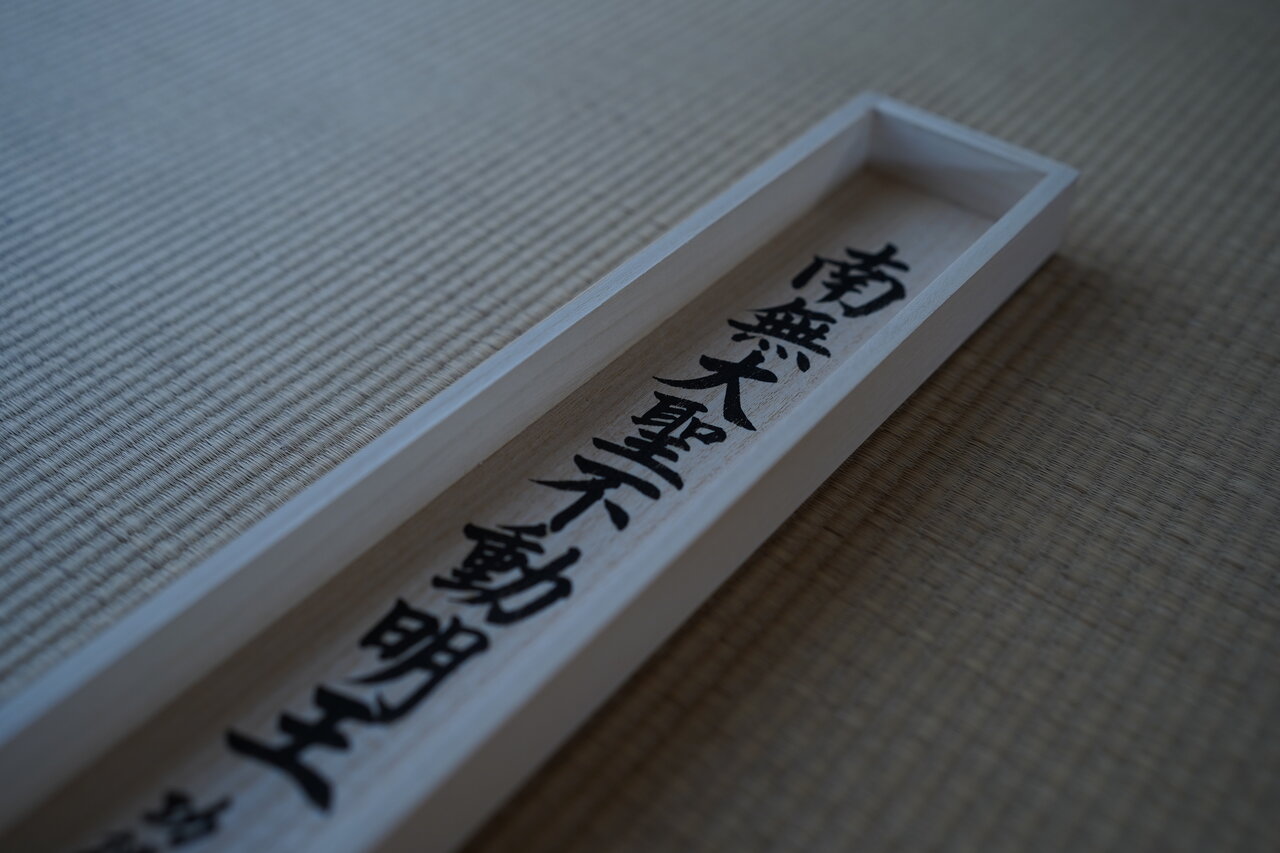 南無大聖不動明王
功